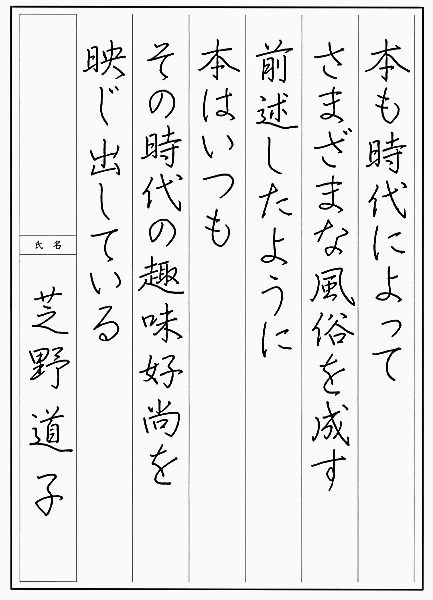 本も時代によって
さまざまな風俗を成す
前述したように
本はいつも
その時代の趣味好尚を
映じ出している
氏名
芝野道子